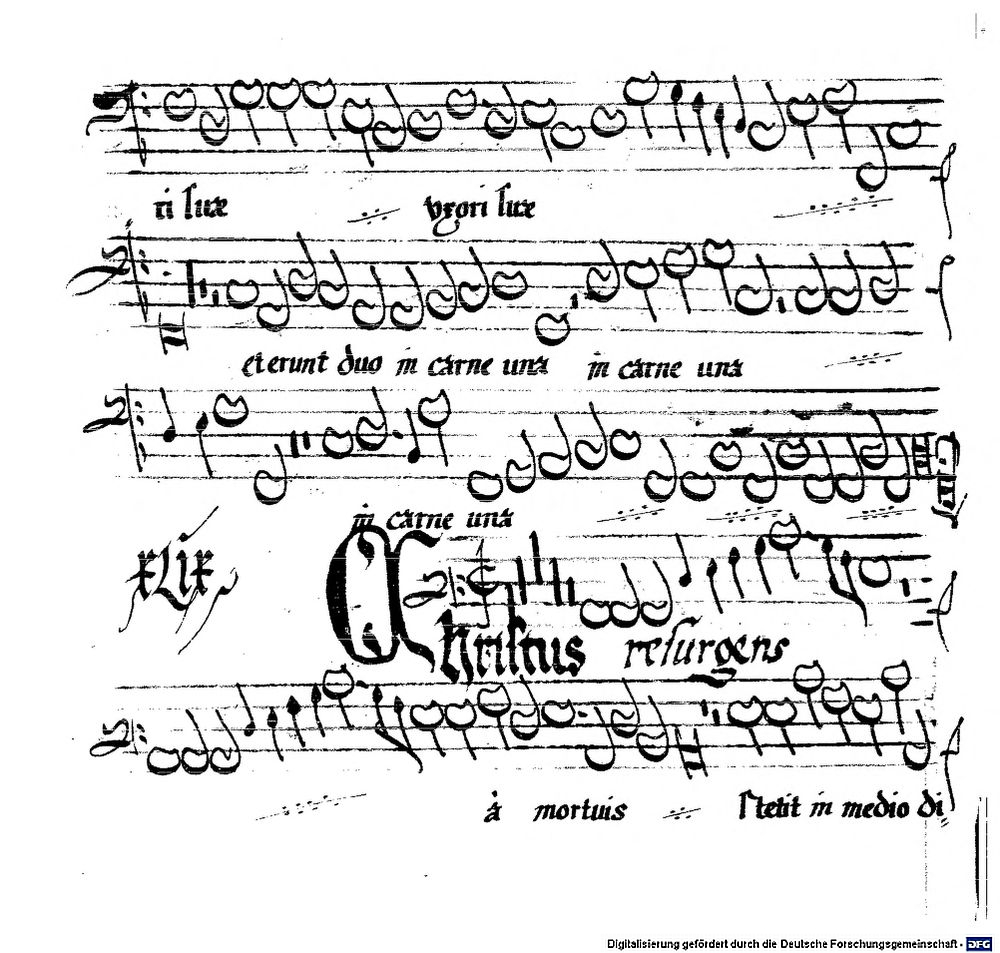 ri suæ uxori suæ
et erunt duo in carne una in carne una
in carne una
xlix
Christus resurgens
à mortuis stetit in medio di
Digitalisierung gefördert durch die Deutsche Forschungsgemeinschaft - DFG